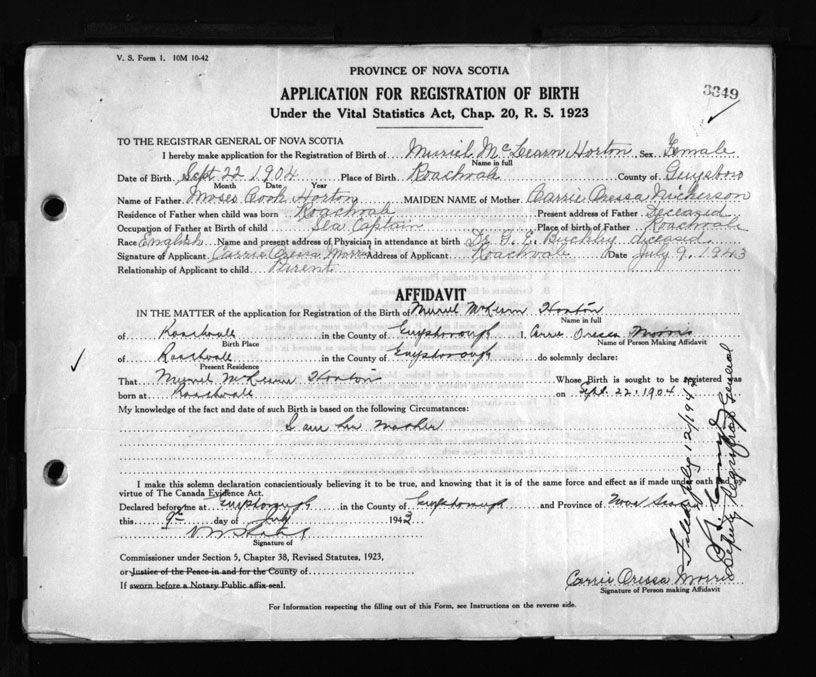 V. S. Form 1. 10M 10-42
PROVINCE OF NOVA SCOTIA
3849
APPLICATION FOR REGISTRATION OF BIRTH
Under the Vital Statistics Act, Chap. 20, R. S. 1923
TO THE REGISTRAR GENERAL OF NOVA SCOTIA
I hereby make application for the Registration of Birth of Muriel McLearn Horton Sex Female
Name in full
Date of Birth Sept 22 1904 Place of Birth Roachvale County of Guysboro
Month Date Year
Name of Father Moses Cook Horton MAIDEN NAME of Mother Carrie Oressa Nickerson
Residence of Father when child was born Roachvale Present address of Father Deceased
Occupation of Father at Birth of child Sea Captain Place of birth of Father Roachvale
Race English Name and present address of Physician in attendance at birth Dr. G. E. Buckley deceased
Signature of Applicant Carrie Oressa Morris Address of Applicant Roachvale Date July 9, 1943
Relationship of Applicant to child Parent
AFFIDAVIT
IN THE MATTER of the application for Registration of the Birth of Muriel McLearn Horton
Name in full
of Roachvale in the County of Guysborough I, Carrie Oressa Morris
Birth Place Name of Person Making Affidavit
of Roachvale in the County of Guysborough do solemnly declare:
Present Residence
That Muriel McLearn Horton Whose Birth is sought to be registered was
born at Roachvale on Sept. 22, 1904
My knowledge of the fact and date of such Birth is based on the following Circumstances:
I am her Mother
I make this solemn declaration conscientiously believing it to be true, and knowing that it is of the same force and effect as if made under oath by
virtue of The Canada Evidence Act.
Declared before me at Guysborough in the County of Guysborough and Province of Nova Scotia
this 9th day of July 1943
Signature of
Commissioner under Section 5, Chapter 38, Revised Statutes, 1923,
or Justice of the Peace in and for the County of
If sworn before a Notary Public affix seal.
Carrie Oressa Morris
Signature of Person making Affidavit
For Information respecting the filling out of this Form, see Instructions on the reverse side.
Filed July 12/1943
Deputy Registrar General